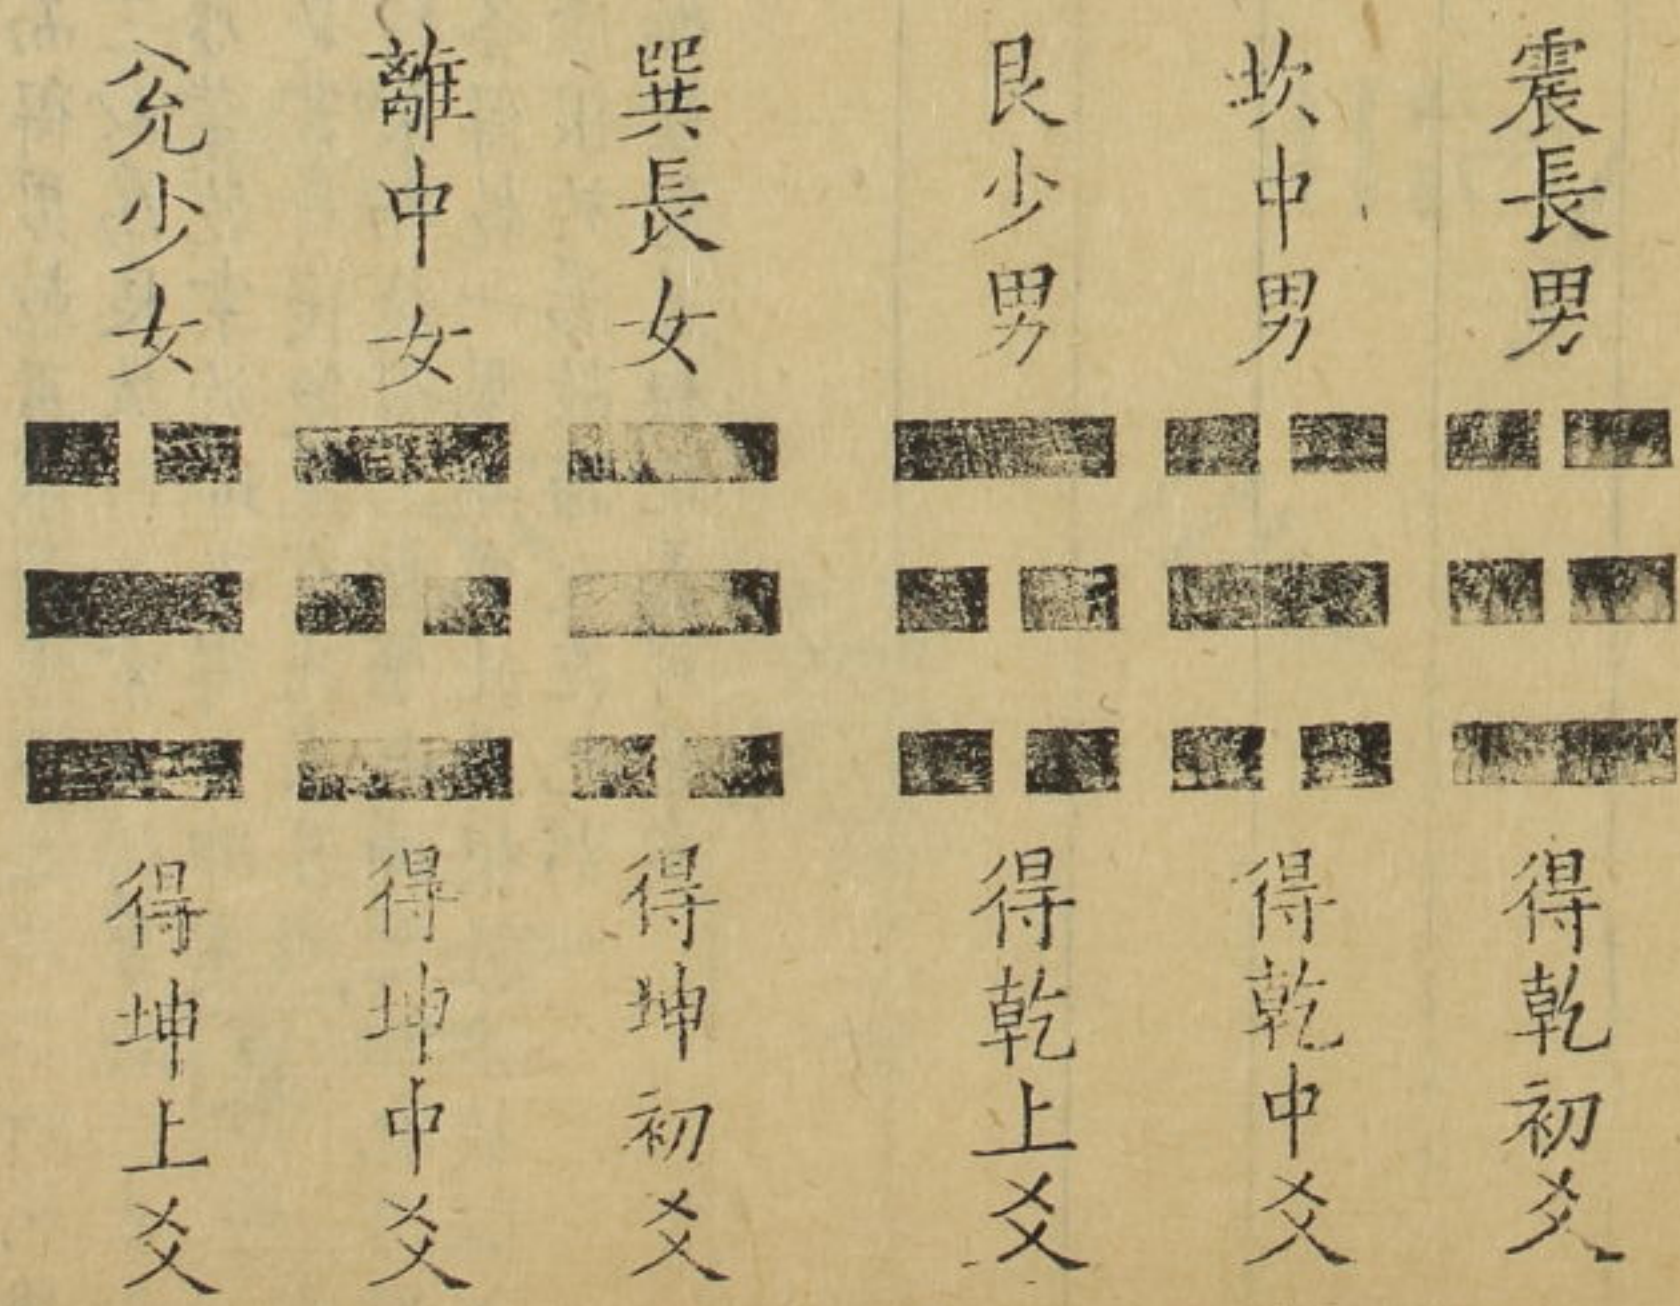 震長男
得乾初爻
坎中男
得乾中爻
艮少男
得乾上爻
巽長女
得坤初爻
離中女
得坤中爻
兊少女
得坤上爻